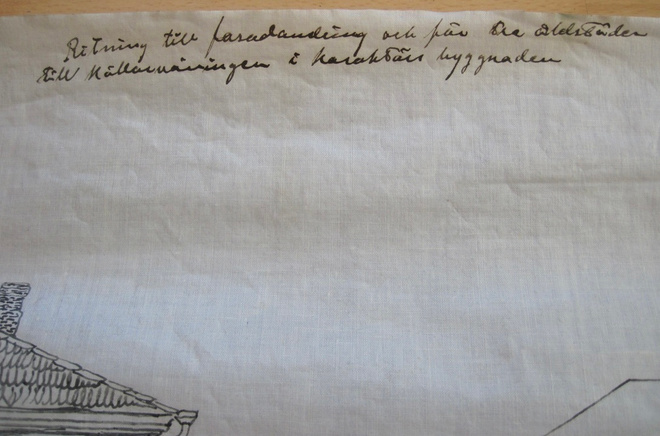 Ritning till fasadandring och för tre eldstäder
till källarvåningen i karaktärs byggnaden